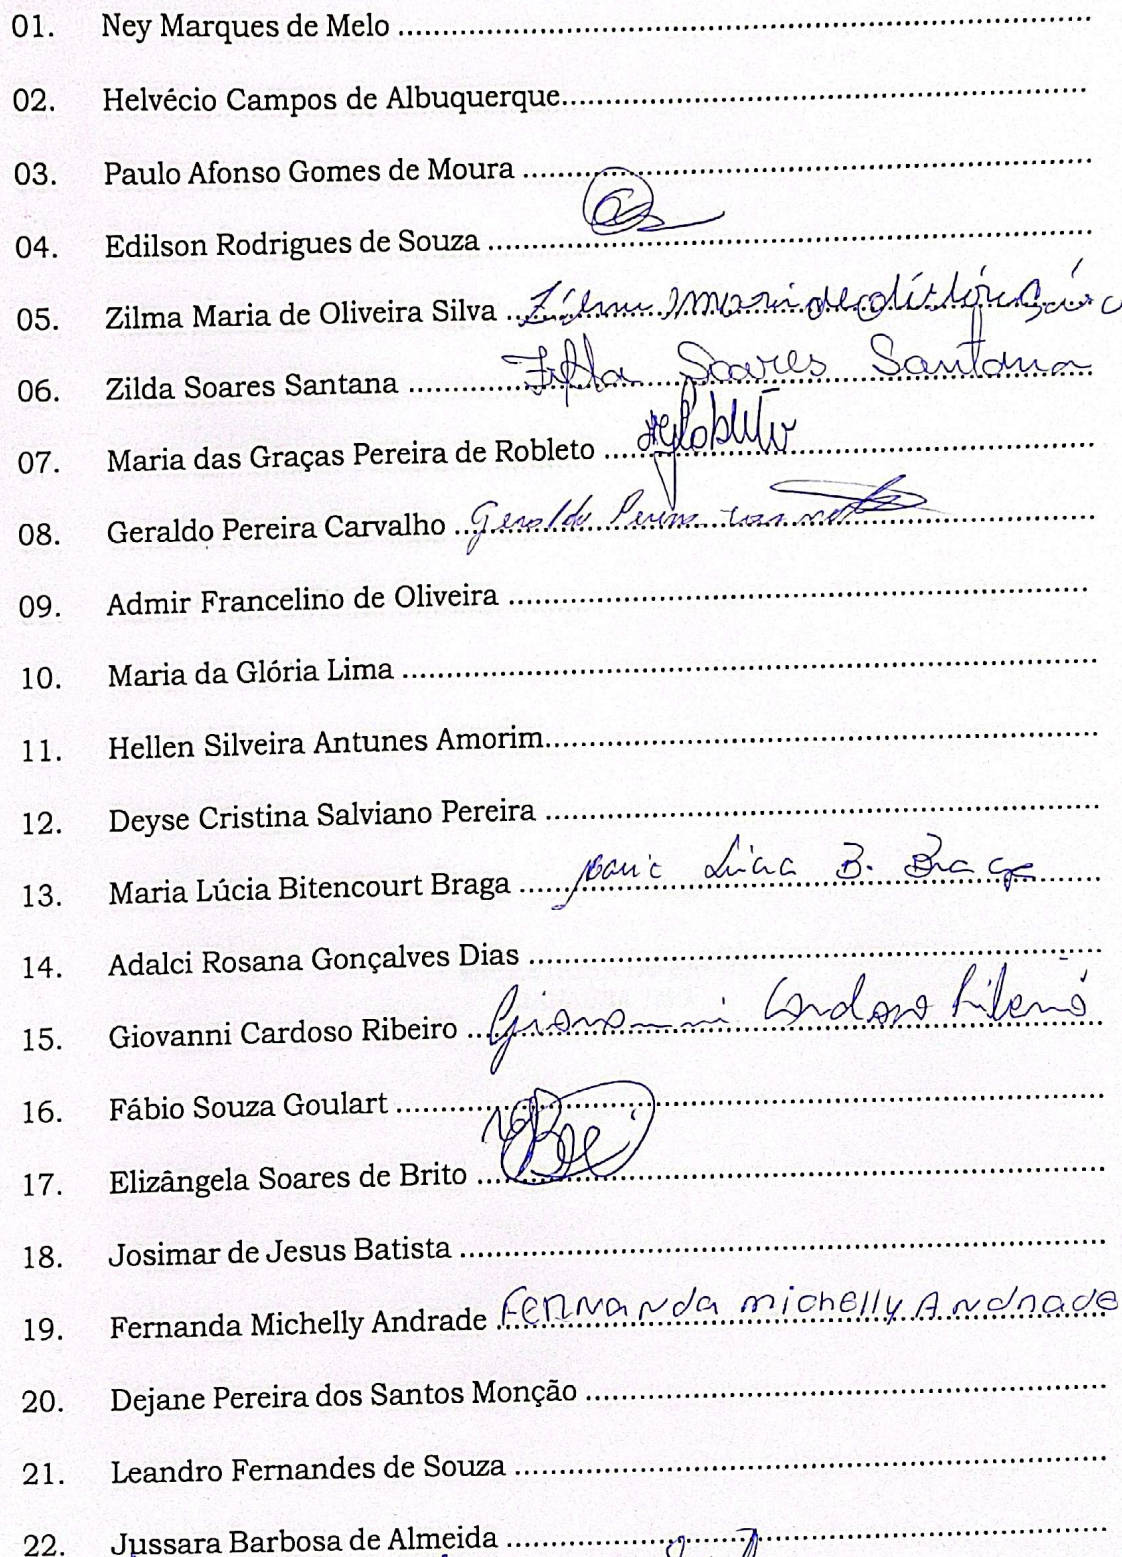 01. Ney Marques de Melo ....................
02. Helvécio Campos de Albuquerque....................
03. Paulo Afonso Gomes de Moura ....................
04. Edilson Rodrigues de Souza ....................
05. Zilma Maria de Oliveira Silva ....................
06. Zilda Soares Santana .................... Zilda Soares Santana
07. Maria das Graças Pereira de Robleto ....................
08. Geraldo Pereira Carvalho .................... Geraldo
09. Admir Francelino de Oliveira ....................
10. Maria da Glória Lima ....................
11. Hellen Silveira Antunes Amorim....................
12. Deyse Cristina Salviano Pereira ....................
13. Maria Lúcia Bitencourt Braga .................... Maria Lúcia B. Braga
14. Adalci Rosana Gonçalves Dias ....................
15. Giovanni Cardoso Ribeiro .................... Giovanni Cardoso Ribeiro
16. Fábio Souza Goulart ....................
17. Elizângela Soares de Brito ....................
18. Josimar de Jesus Batista ....................
19. Fernanda Michelly Andrade .................... Fernanda michelly Andrade
20. Dejane Pereira dos Santos Monção ....................
21. Leandro Fernandes de Souza ....................
22. Jussara Barbosa de Almeida ....................